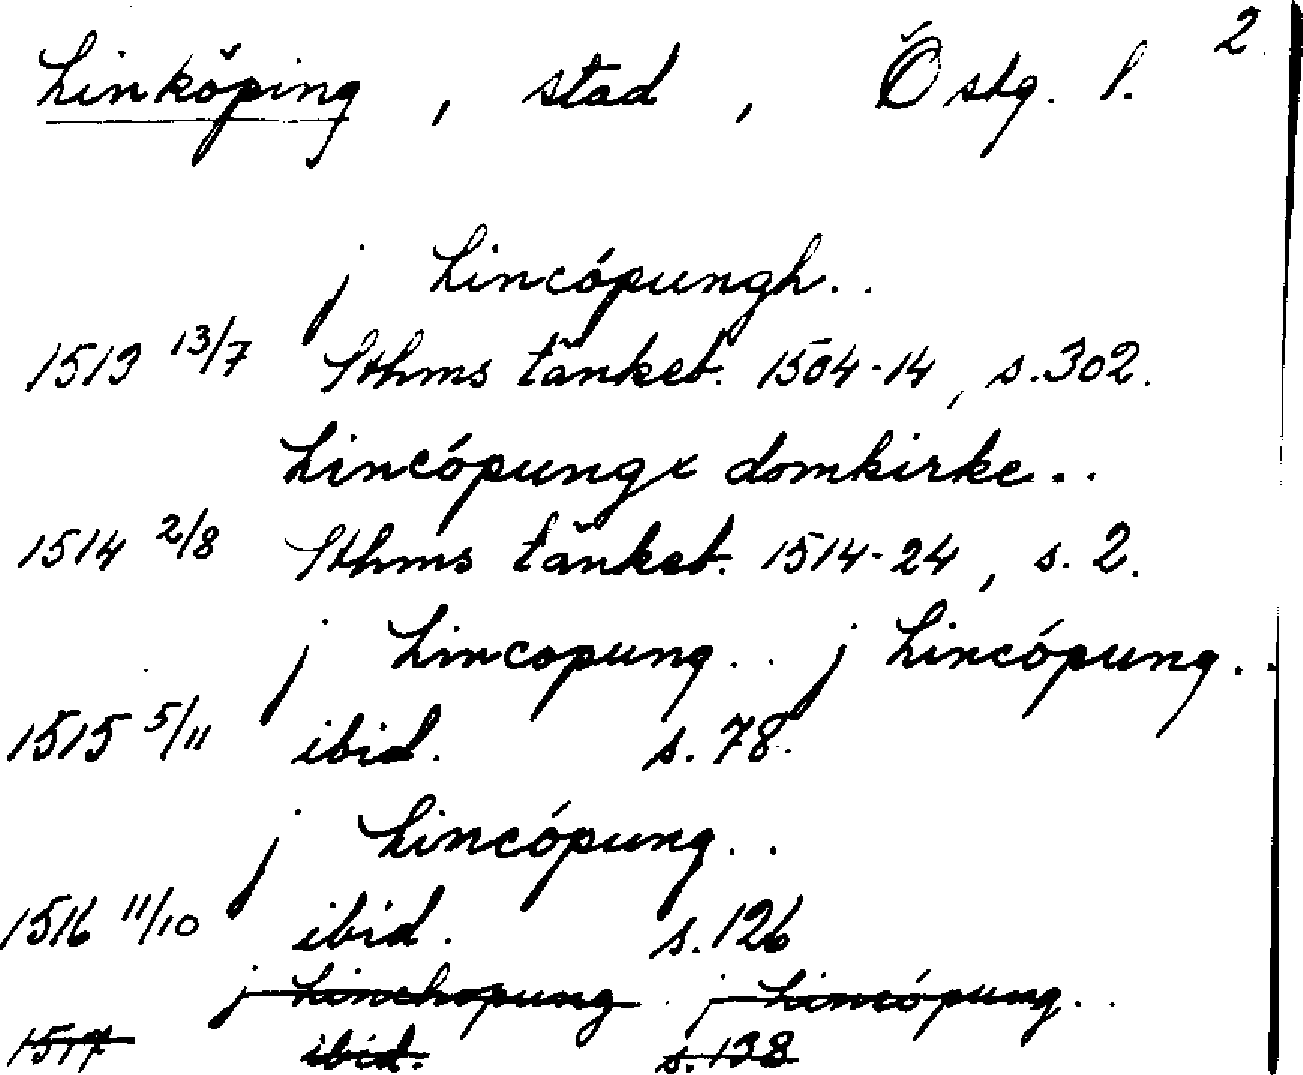 2
Linköping, stad, Östg. l.
j Lincópungh..
1513 13/7 Sthms tänkeb. 1504-14, s. 302.
Lincópungx domkirke..
1514 2/8 Sthms tänkeb. 1514-24, s. 2.
j Lincopung.. j Lincópung..
1515 5/11 ibid. s. 78.
j Lincópung..
1516 11/10 ibid. s. 126
j Linchopung. j Lincópung..
1517 ibid. s. 138